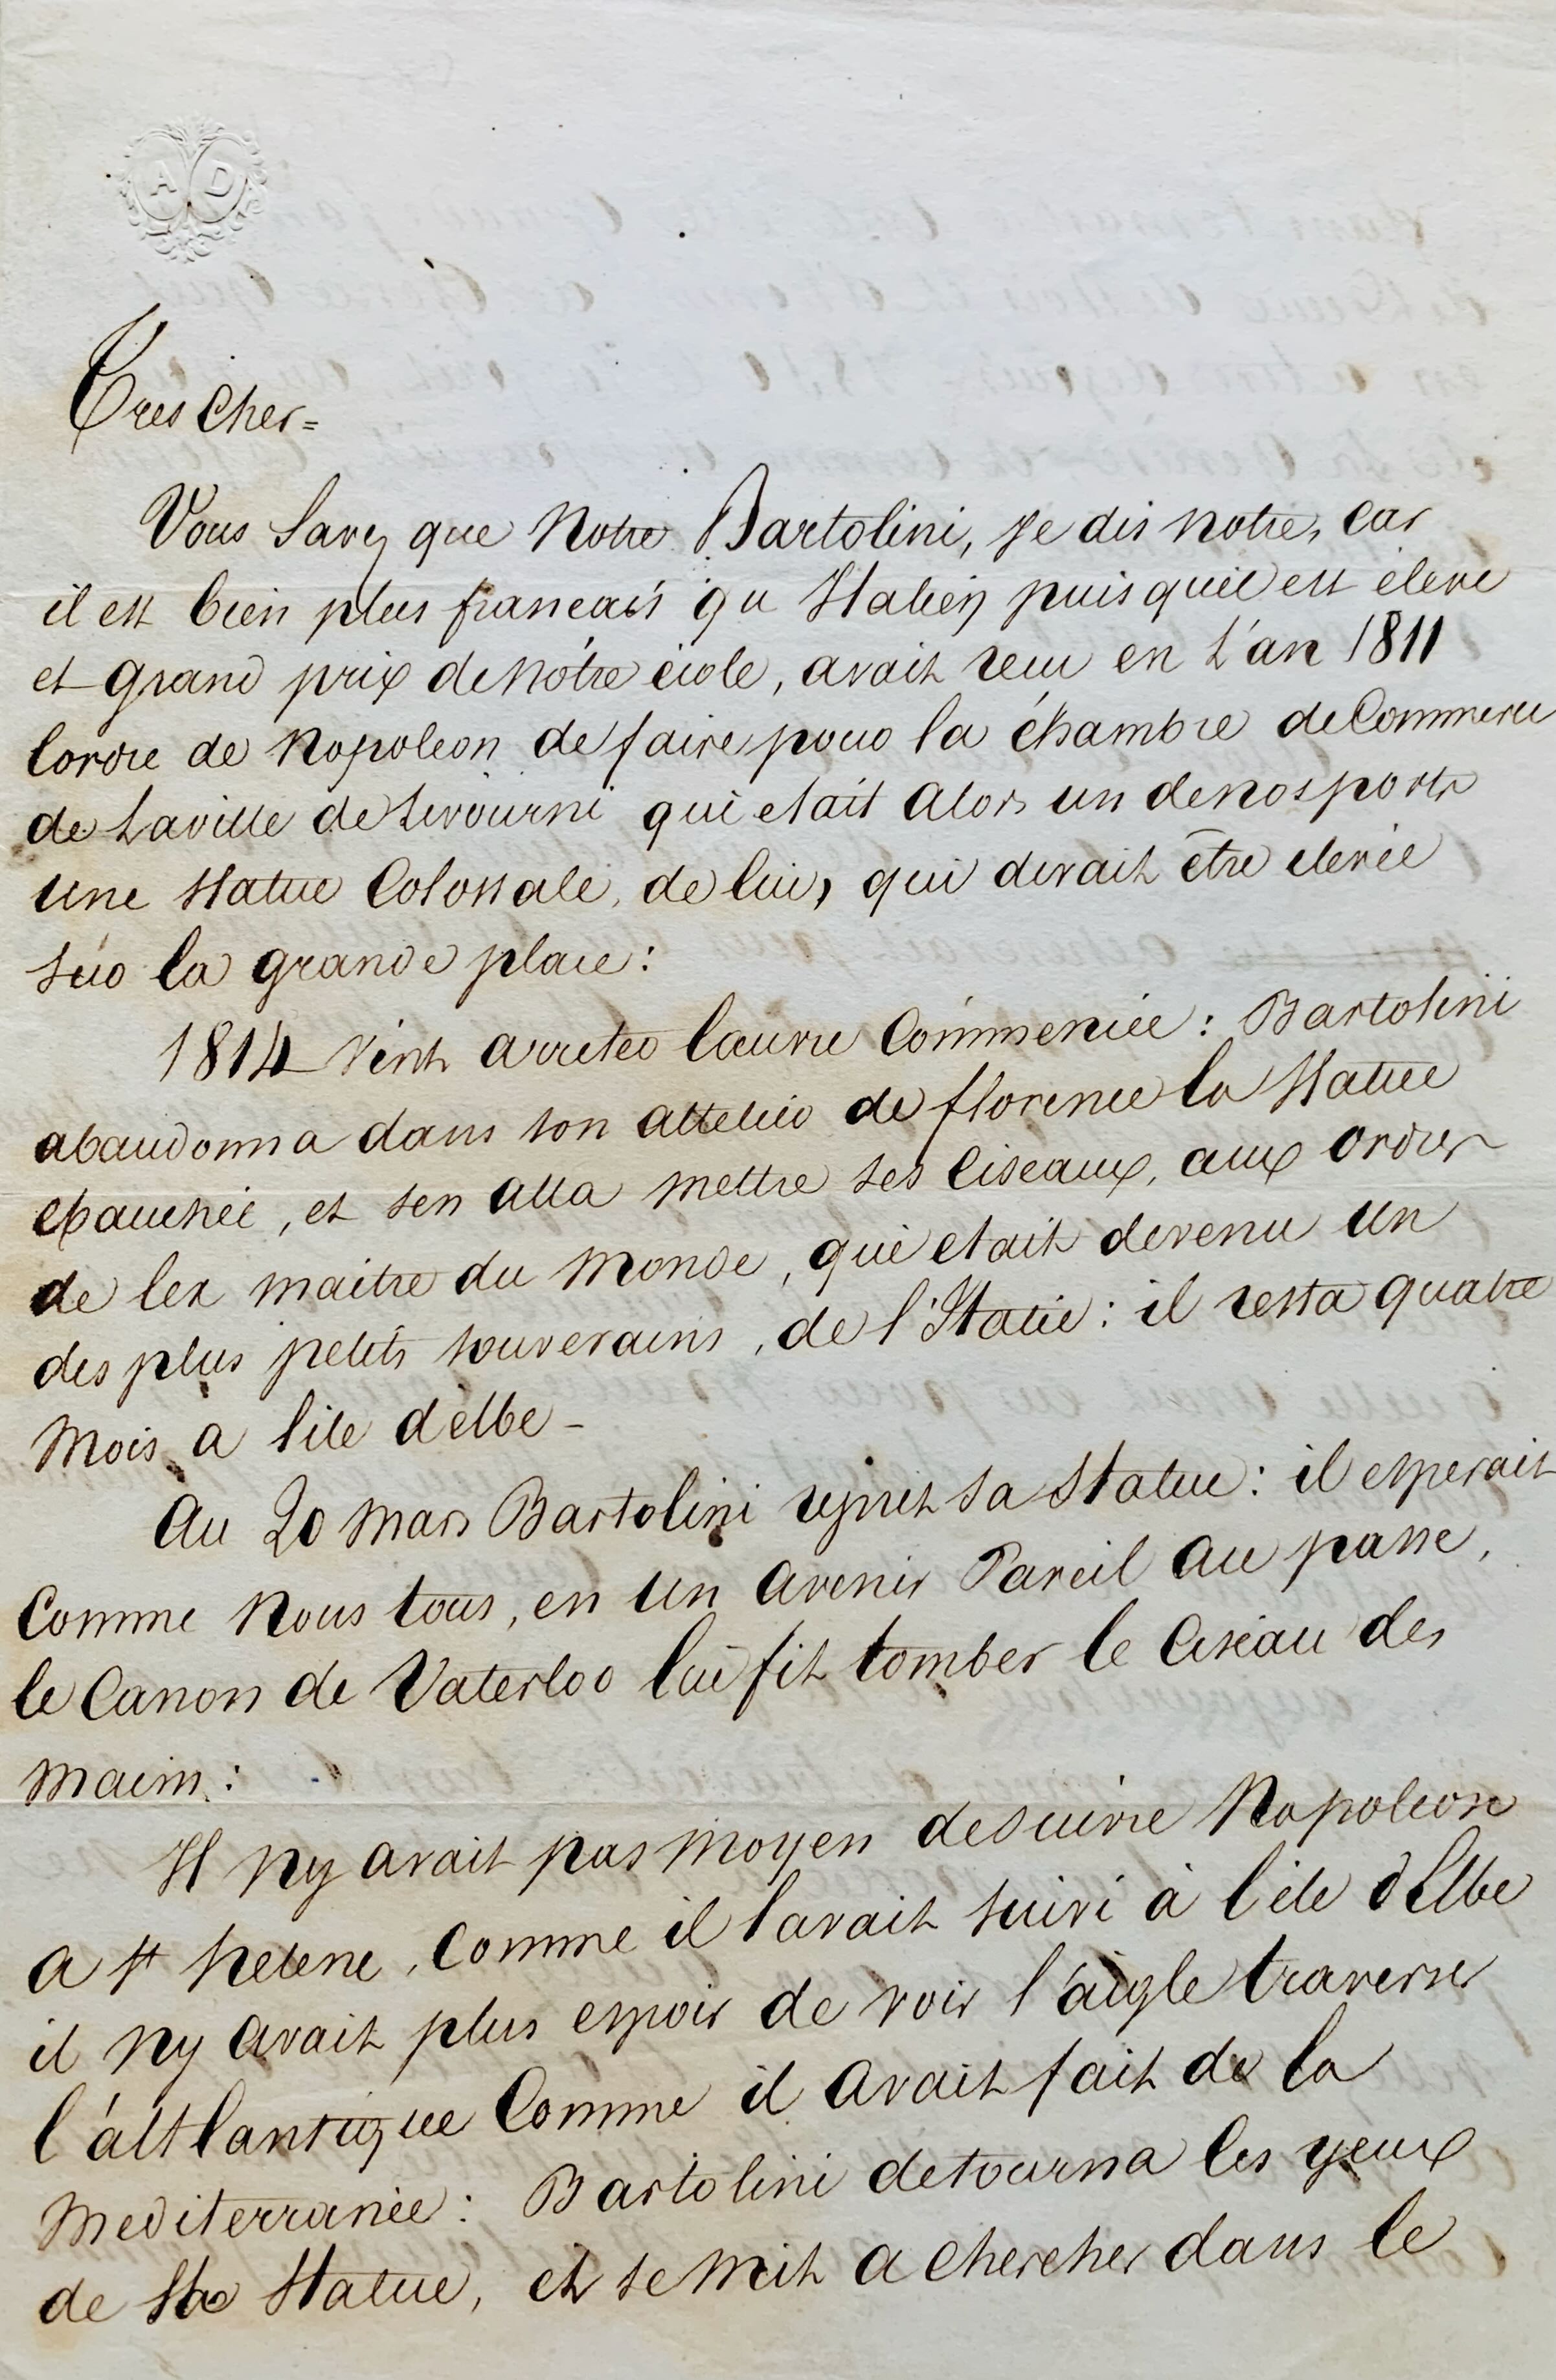 A D
Tres Cher=
Vous Savez que Notre Bartolini, je dis notre, car
il est bien plus francais qu Italien puis quil est élevé
et grand prix de Nótre école, avait recu en L'an 1811
lordre de Napoleon de faire pour la chambre de Commerce
de La ville de Livourni qui etait Alors un de nos ports
une Statue Colossale, de lui, qui devait être elevée
sur la grande place:
1814 vint arreter lœuvre Commencée: Bartolini
abandonna dans son attelier de florence la Statue
ebauchée, et sen alla mettre ses Ciseaux, aux ordres
de lex maitre du Monde, qui etait devenu un
des plus petits souverains, de l'Italie: il resta quatre
Mois a lile d'elbe -
Au 20 Mars Bartolini reprit sa Statue: il esperait
Comme Nous tous, en un Avenir Pareil Au passe,
le Canon de Vaterloo lui fit tomber le Ciseau des
mains:
Il Ny avait pas Moyen de suivre Napoleon
a St helene, Comme il lavait suivi à l'ile d'Elbe
il Ny avait plus espoir de voir l'aigle traverser
l'altlantique Comme il avait fait de la
Mediterranée: Bartolini detourna les yeux
de Statue, et se Mit a chercher dans le